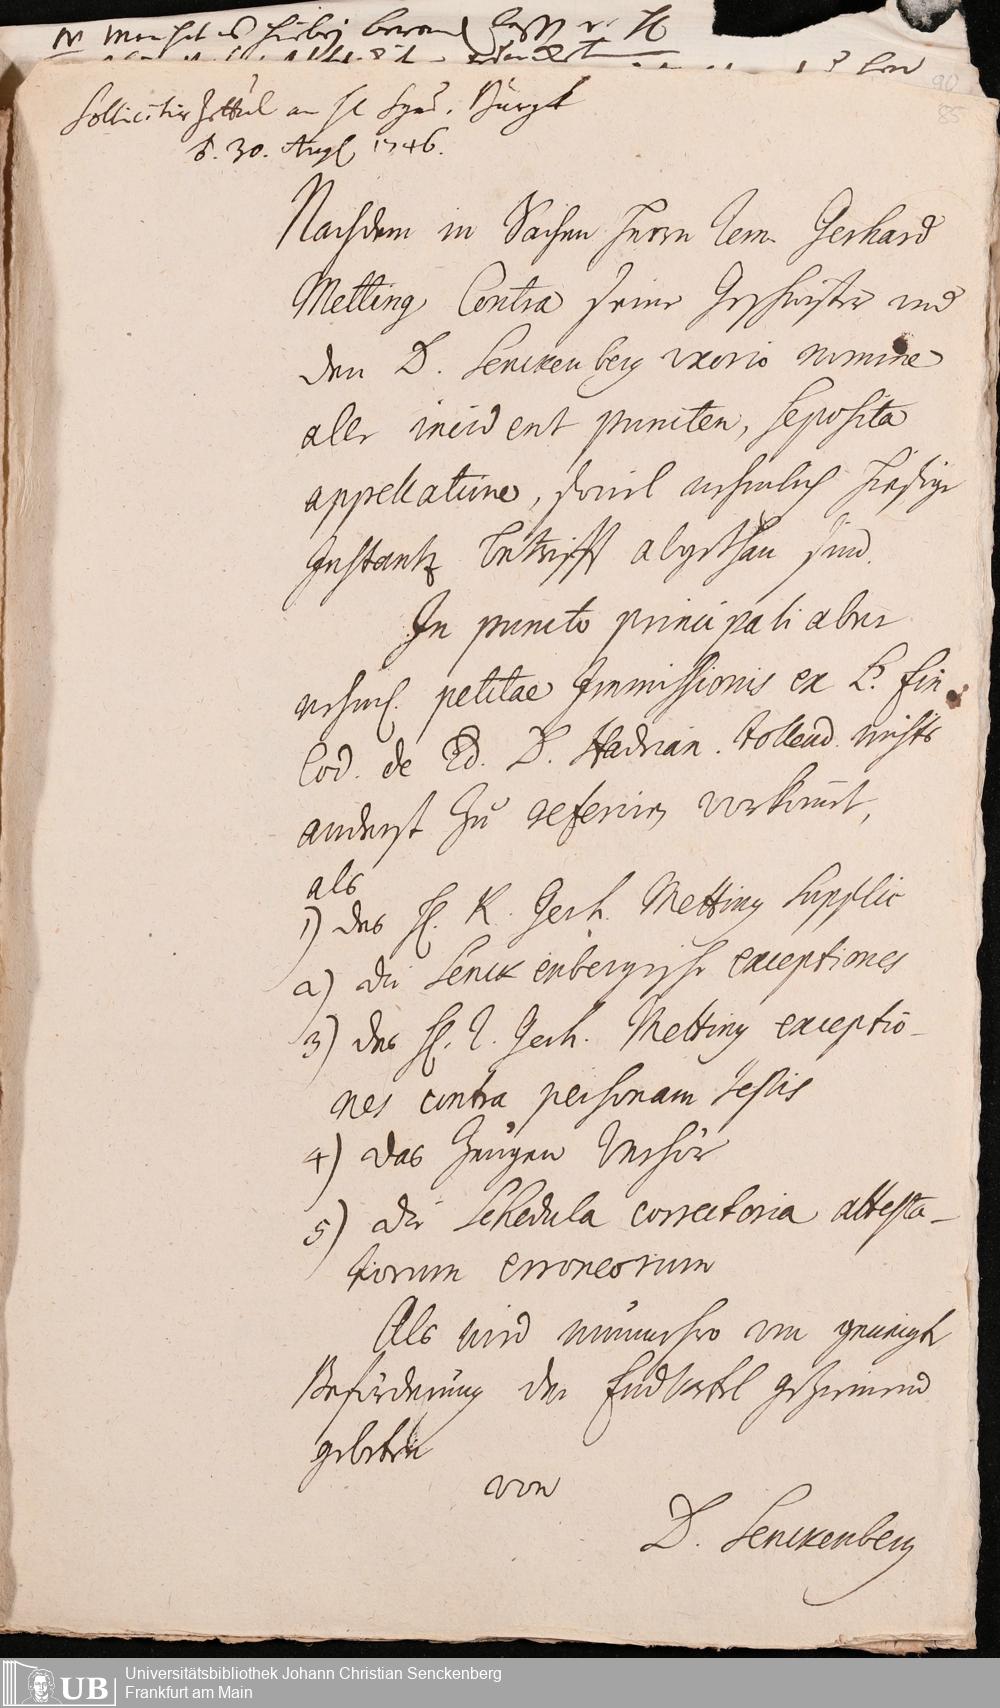 Sollicitir Zettul an H. Synd. Burgk
d. 30. Aug. 1746.
90
85
Nachdem in Sachen Herrn Gerhard
Metting Contra seine Geschwister und
den D. Senckenberg uxorio nomine
alle incident puncten, seposita
appellatione, soviel nehmlich hiesige
Instantz betrifft abgethan sind.
In puncto principali aber
nehml. petitae Immissionis ex L. fin
Cod. de Ed. D. Hadrian. tollend. nichts
anderst zu referiren vorkomt,
als
1) des H. Gerh. Metting Supplic
2) die Senckenbergische exceptiones
3) des H. Gerh. Metting exceptio-
nes contra personam testis
4) das Zeugen Verhör
5) die Schedula correctoria attesta-
torum erroneorum
Als wird nunmehro um geneigte
Beförderung der Endurtel geziemend
gebeten
von
D. Senckenberg
UB
Universitätsbibliothek Johann Christian Senckenberg
Frankfurt am Main